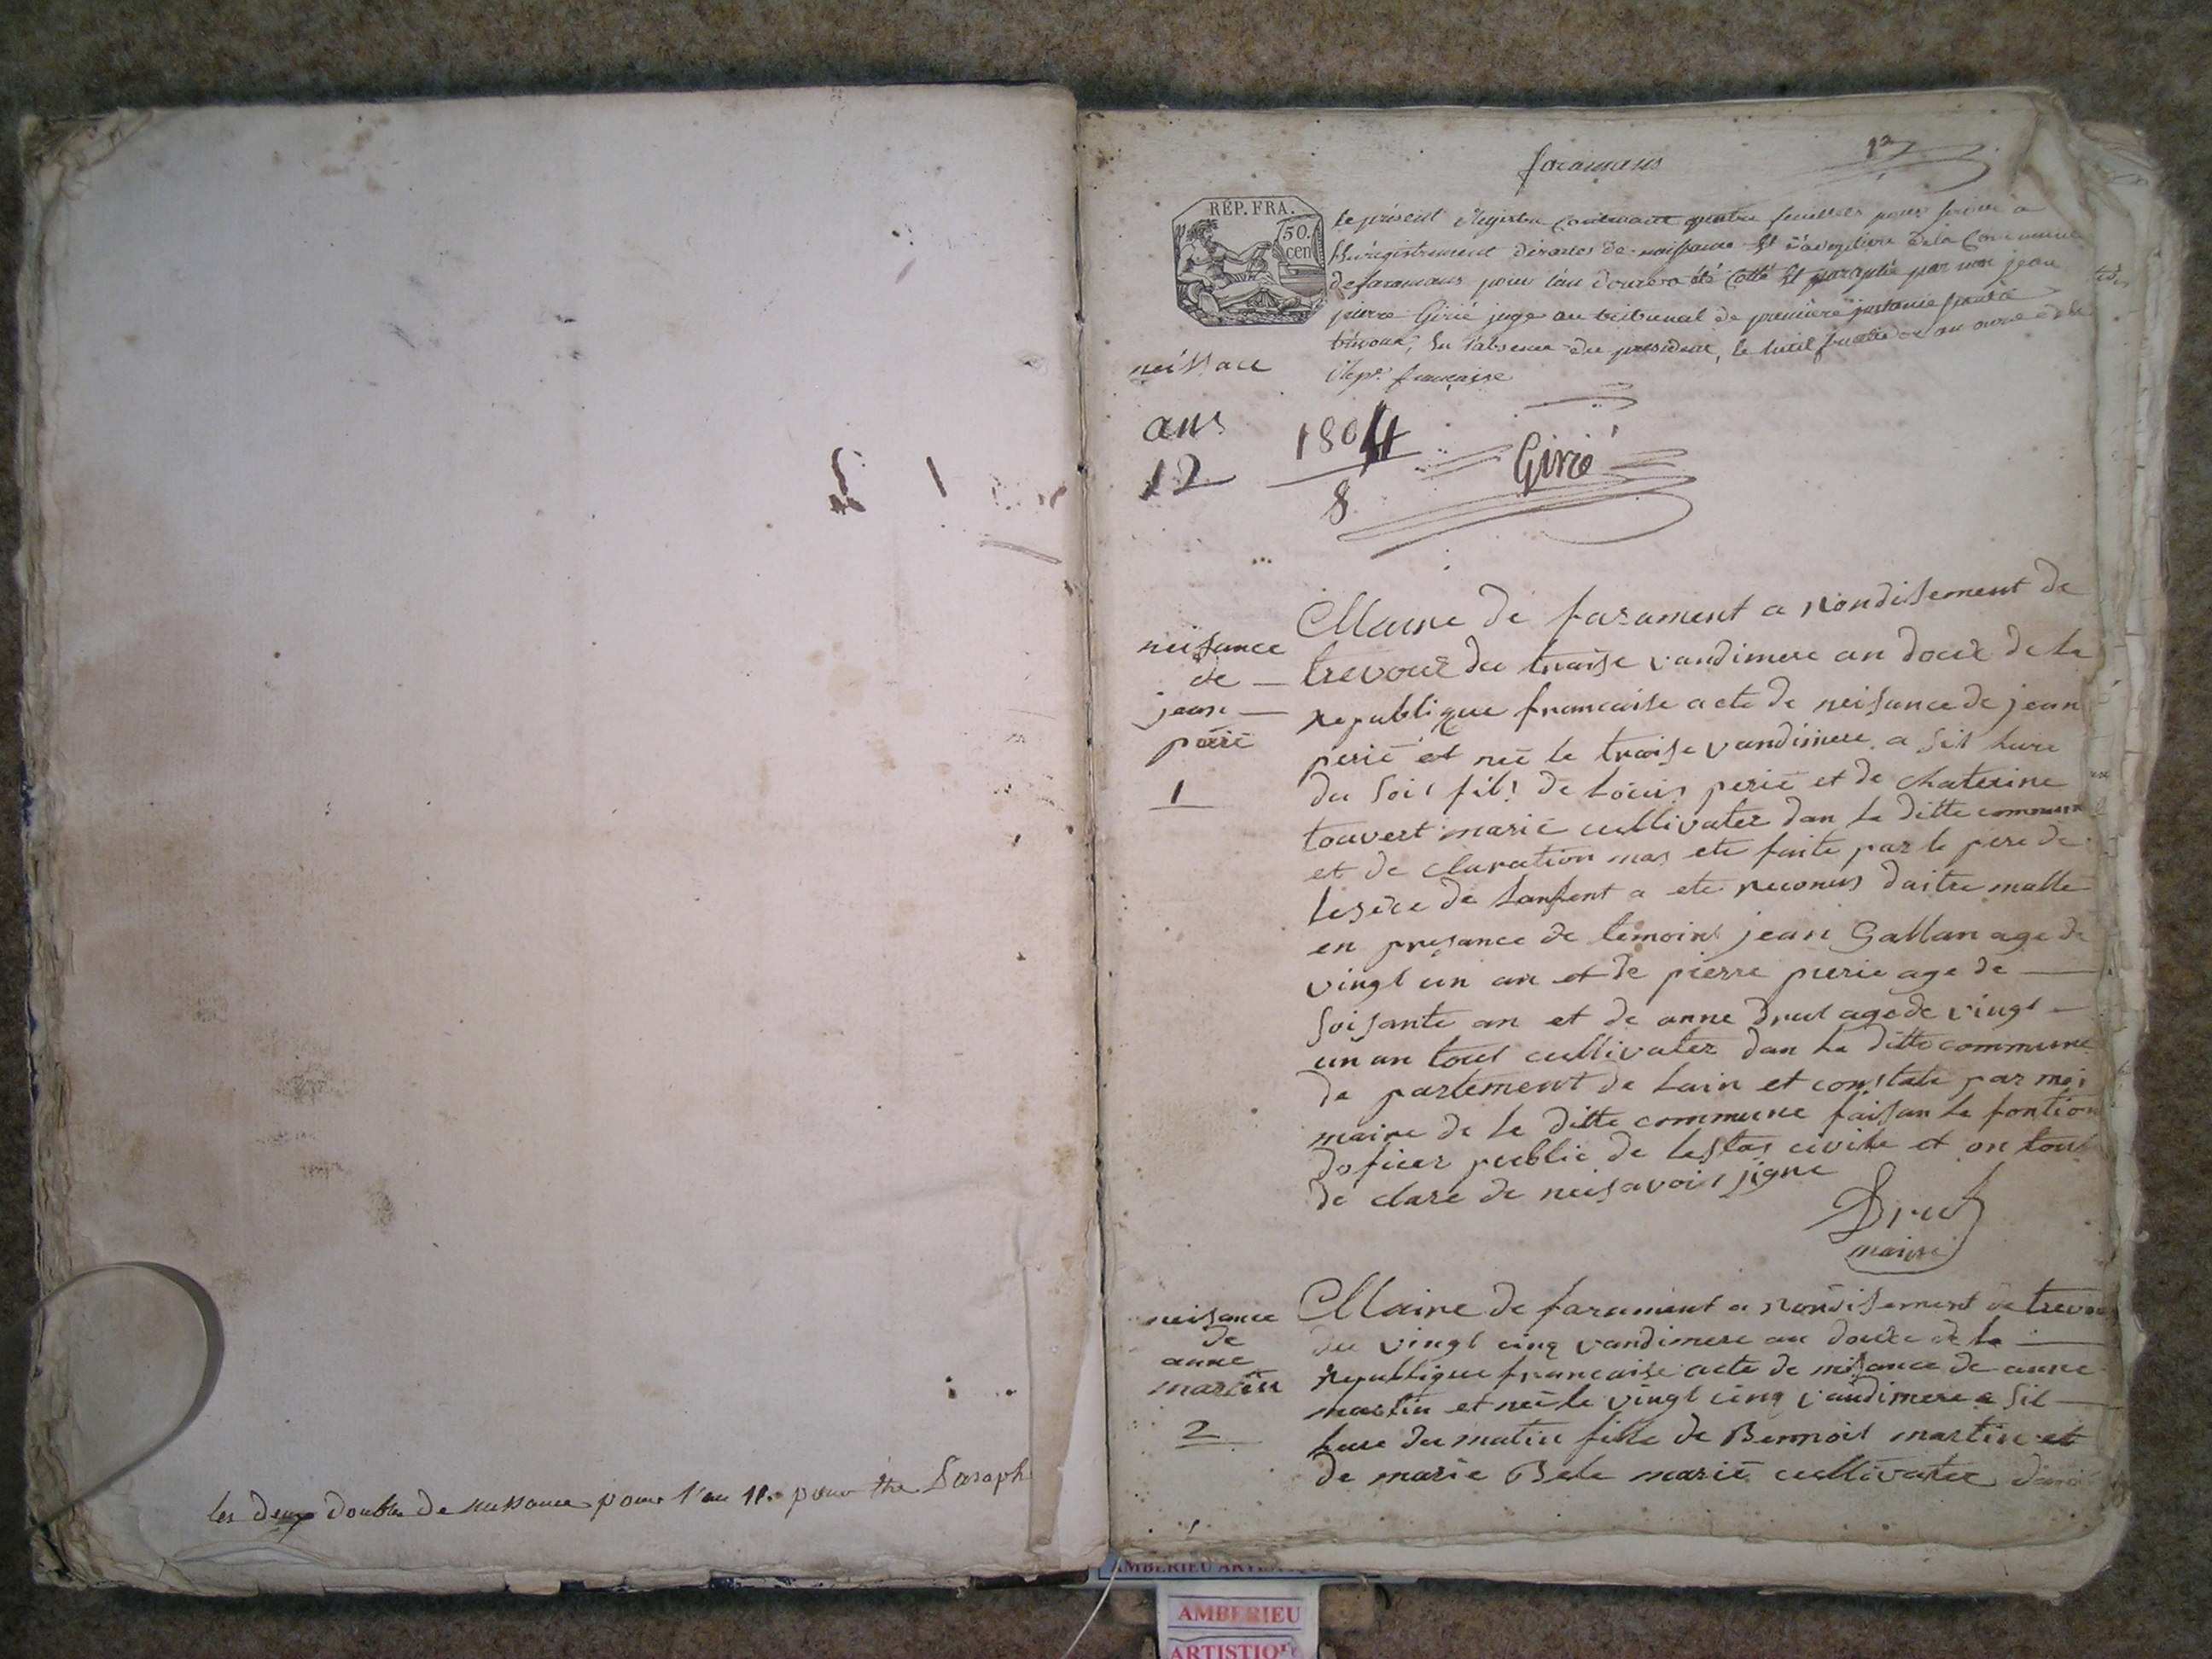 les deux doubles de naissance pour l'an 11. pour
faramans
RÉP. FRA.
50.
cen
le présent Registre contenant quatre feuillets pour servir à
l'enregistrement des actes de naissance de la Commune
de faramans pour l'an douze a été cotté et paraphé par moi jean
pierre Girié juge au tribunal de première instance
trévoux, en l'absence du président, le huit an onze de la
Rep.e française
neissace
ans
12
1804
8
Girié
neisance
de
jean
perié
1
Maire de farament a rondisement de
trevoux du traise vandimere an douze de la
republique francaise acte de neisance de jean
perié et neé le traise vandimere a sis hure
du soir fils de Louis perié et de chaterine
touvert marié cultivater dan la ditte commune
et de claration mas ete faite par le pere de
lesece de lanfent a ete reconus daitre malle
en presance de temoins jean Gallan age de
vingt un an et de pierre perie age de
soisante an et de anne Drut age de vingt
un an tous cultivater dan la ditte commune
de partement de Lain et constate par moi
maire de la ditte commune faisan la fontion
doficer public de lestas civile et on tous
dé clare de neisavoir signe
Drut
maire
neisance
de
anne
martin
2
Maire de farament a rondisement de trevoux
du vingt cinq vandimere an douze de la
republique francaise acte de neisance de anne
martin et neé le vingt cinq vandimere a sis
hure du matin fille de Bennoit martin et
de marie Bele marié cultivater
AMBERIEU
ARTISTIQUE
AMBERIEU
ARTISTIQUE